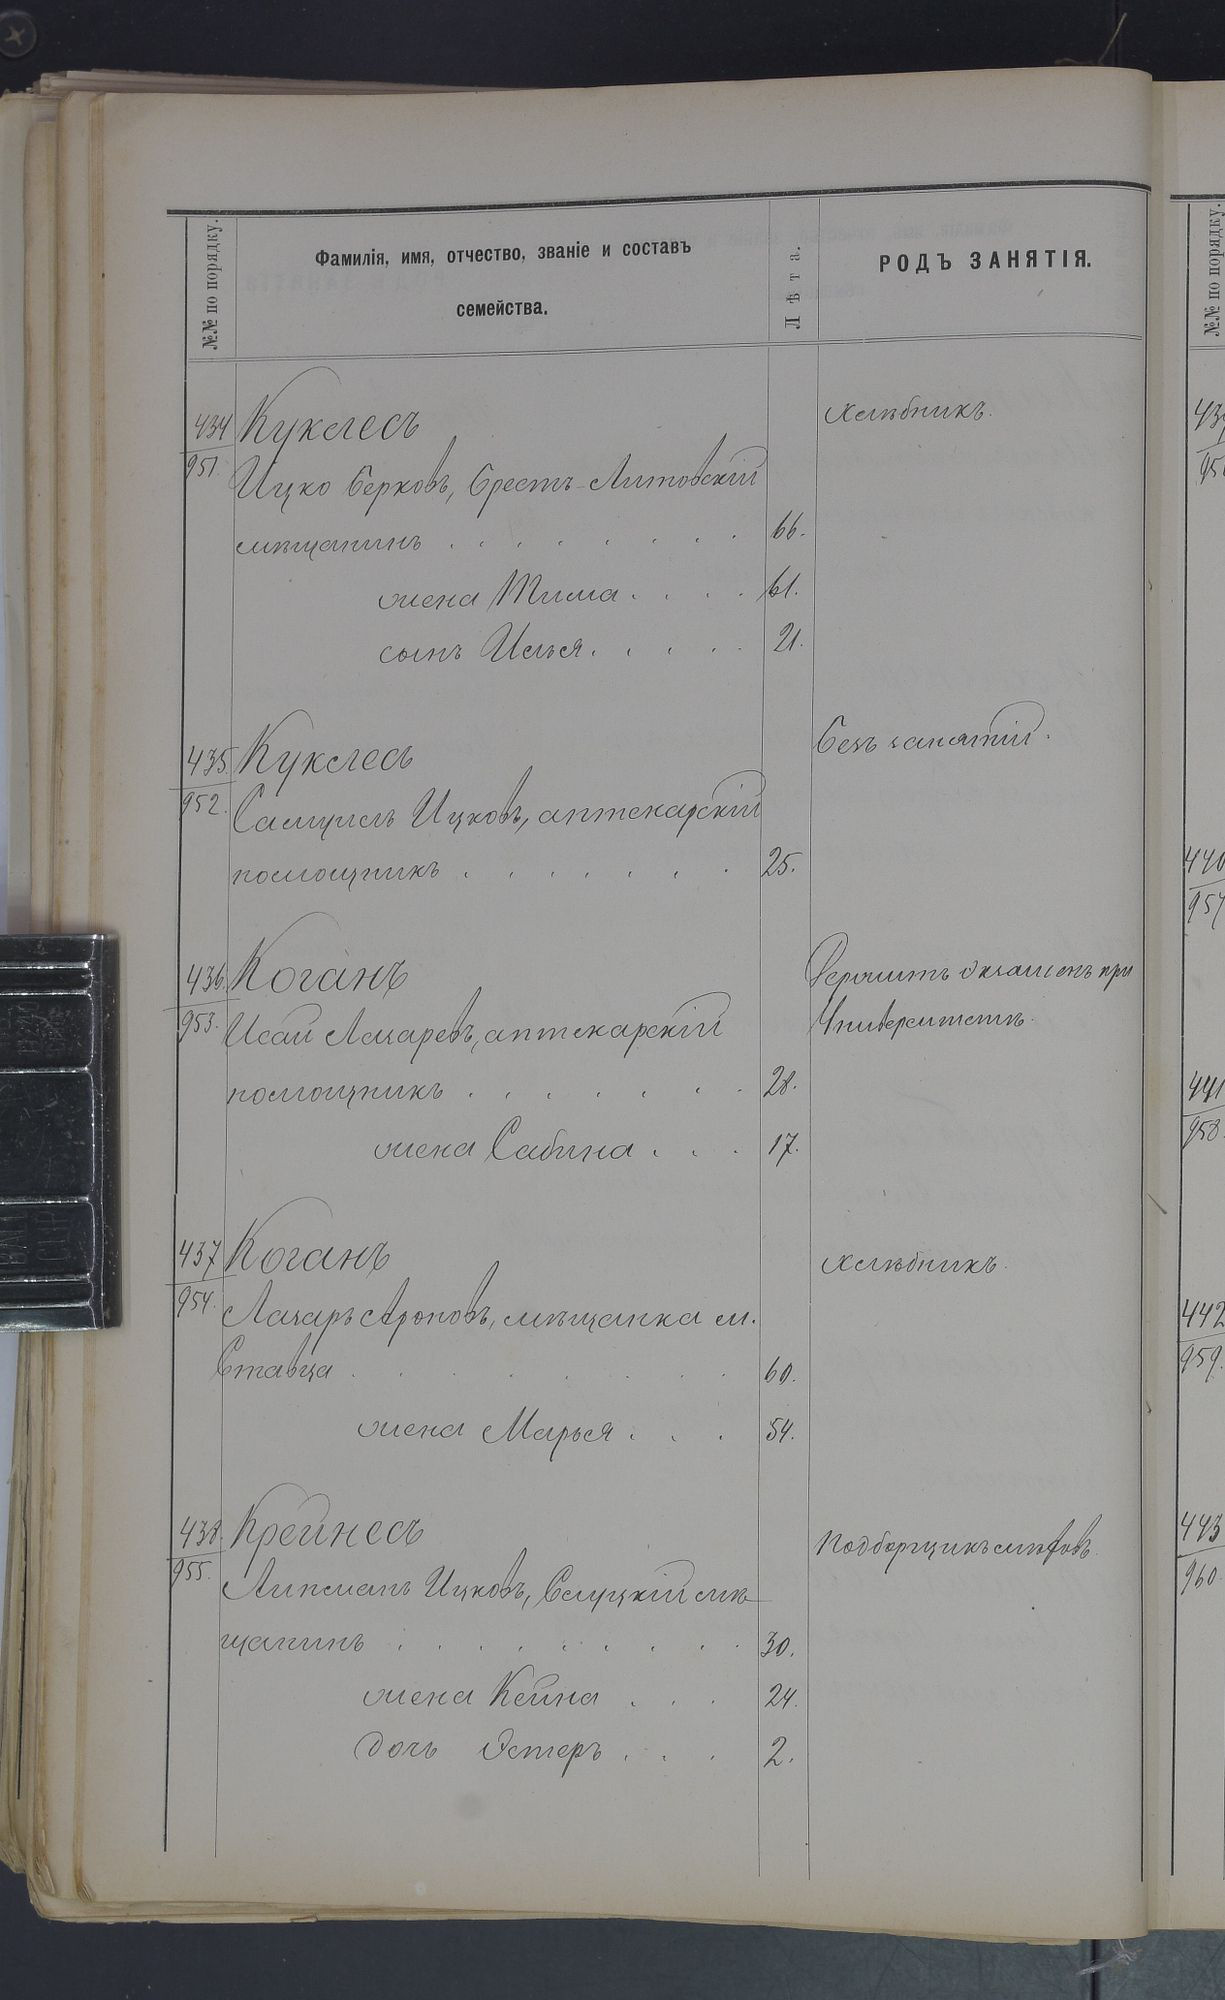 №№ по порядку.
Фамилія, имя, отчество, званіе и составъ
семейства.
Лѣта.
РОДЪ ЗАНЯТІЯ.
434 Куклесъ хлѣбникъ.
951. Ицко Берковъ, Брестъ-Литовскій
мѣщанинъ . . . . . . . . 66.
жена Тима . . . . 61.
сынъ Илья . . . . . 21.
435. Куклесъ Безъ занятій.
952. Самуилъ Ицковъ, аптекарскій
помощникъ . . . . . . . 25.
436. Коганъ Держитъ экзаменъ при
953. Исай Лазаревъ, аптекарскій Университетѣ.
помощникъ . . . . . . . 28.
жена Сабина . . . 17.
437 Коганъ хлѣбникъ.
954. Лазарь Ароновъ, мѣщанка м.
Ставца . . . . . . . . . 60.
жена Марья . . . 54.
438. Крейнесъ Подборщикъ мѣховъ.
955. Липманъ Ицковъ, Слуцкій мѣ-
щанинъ . . . . . . . . . 30.
жена Кейна . . . 24.
дочь Эстеръ . . . 2.
№№ по порядку.
440
957
441
958.
442
959.
443
960.